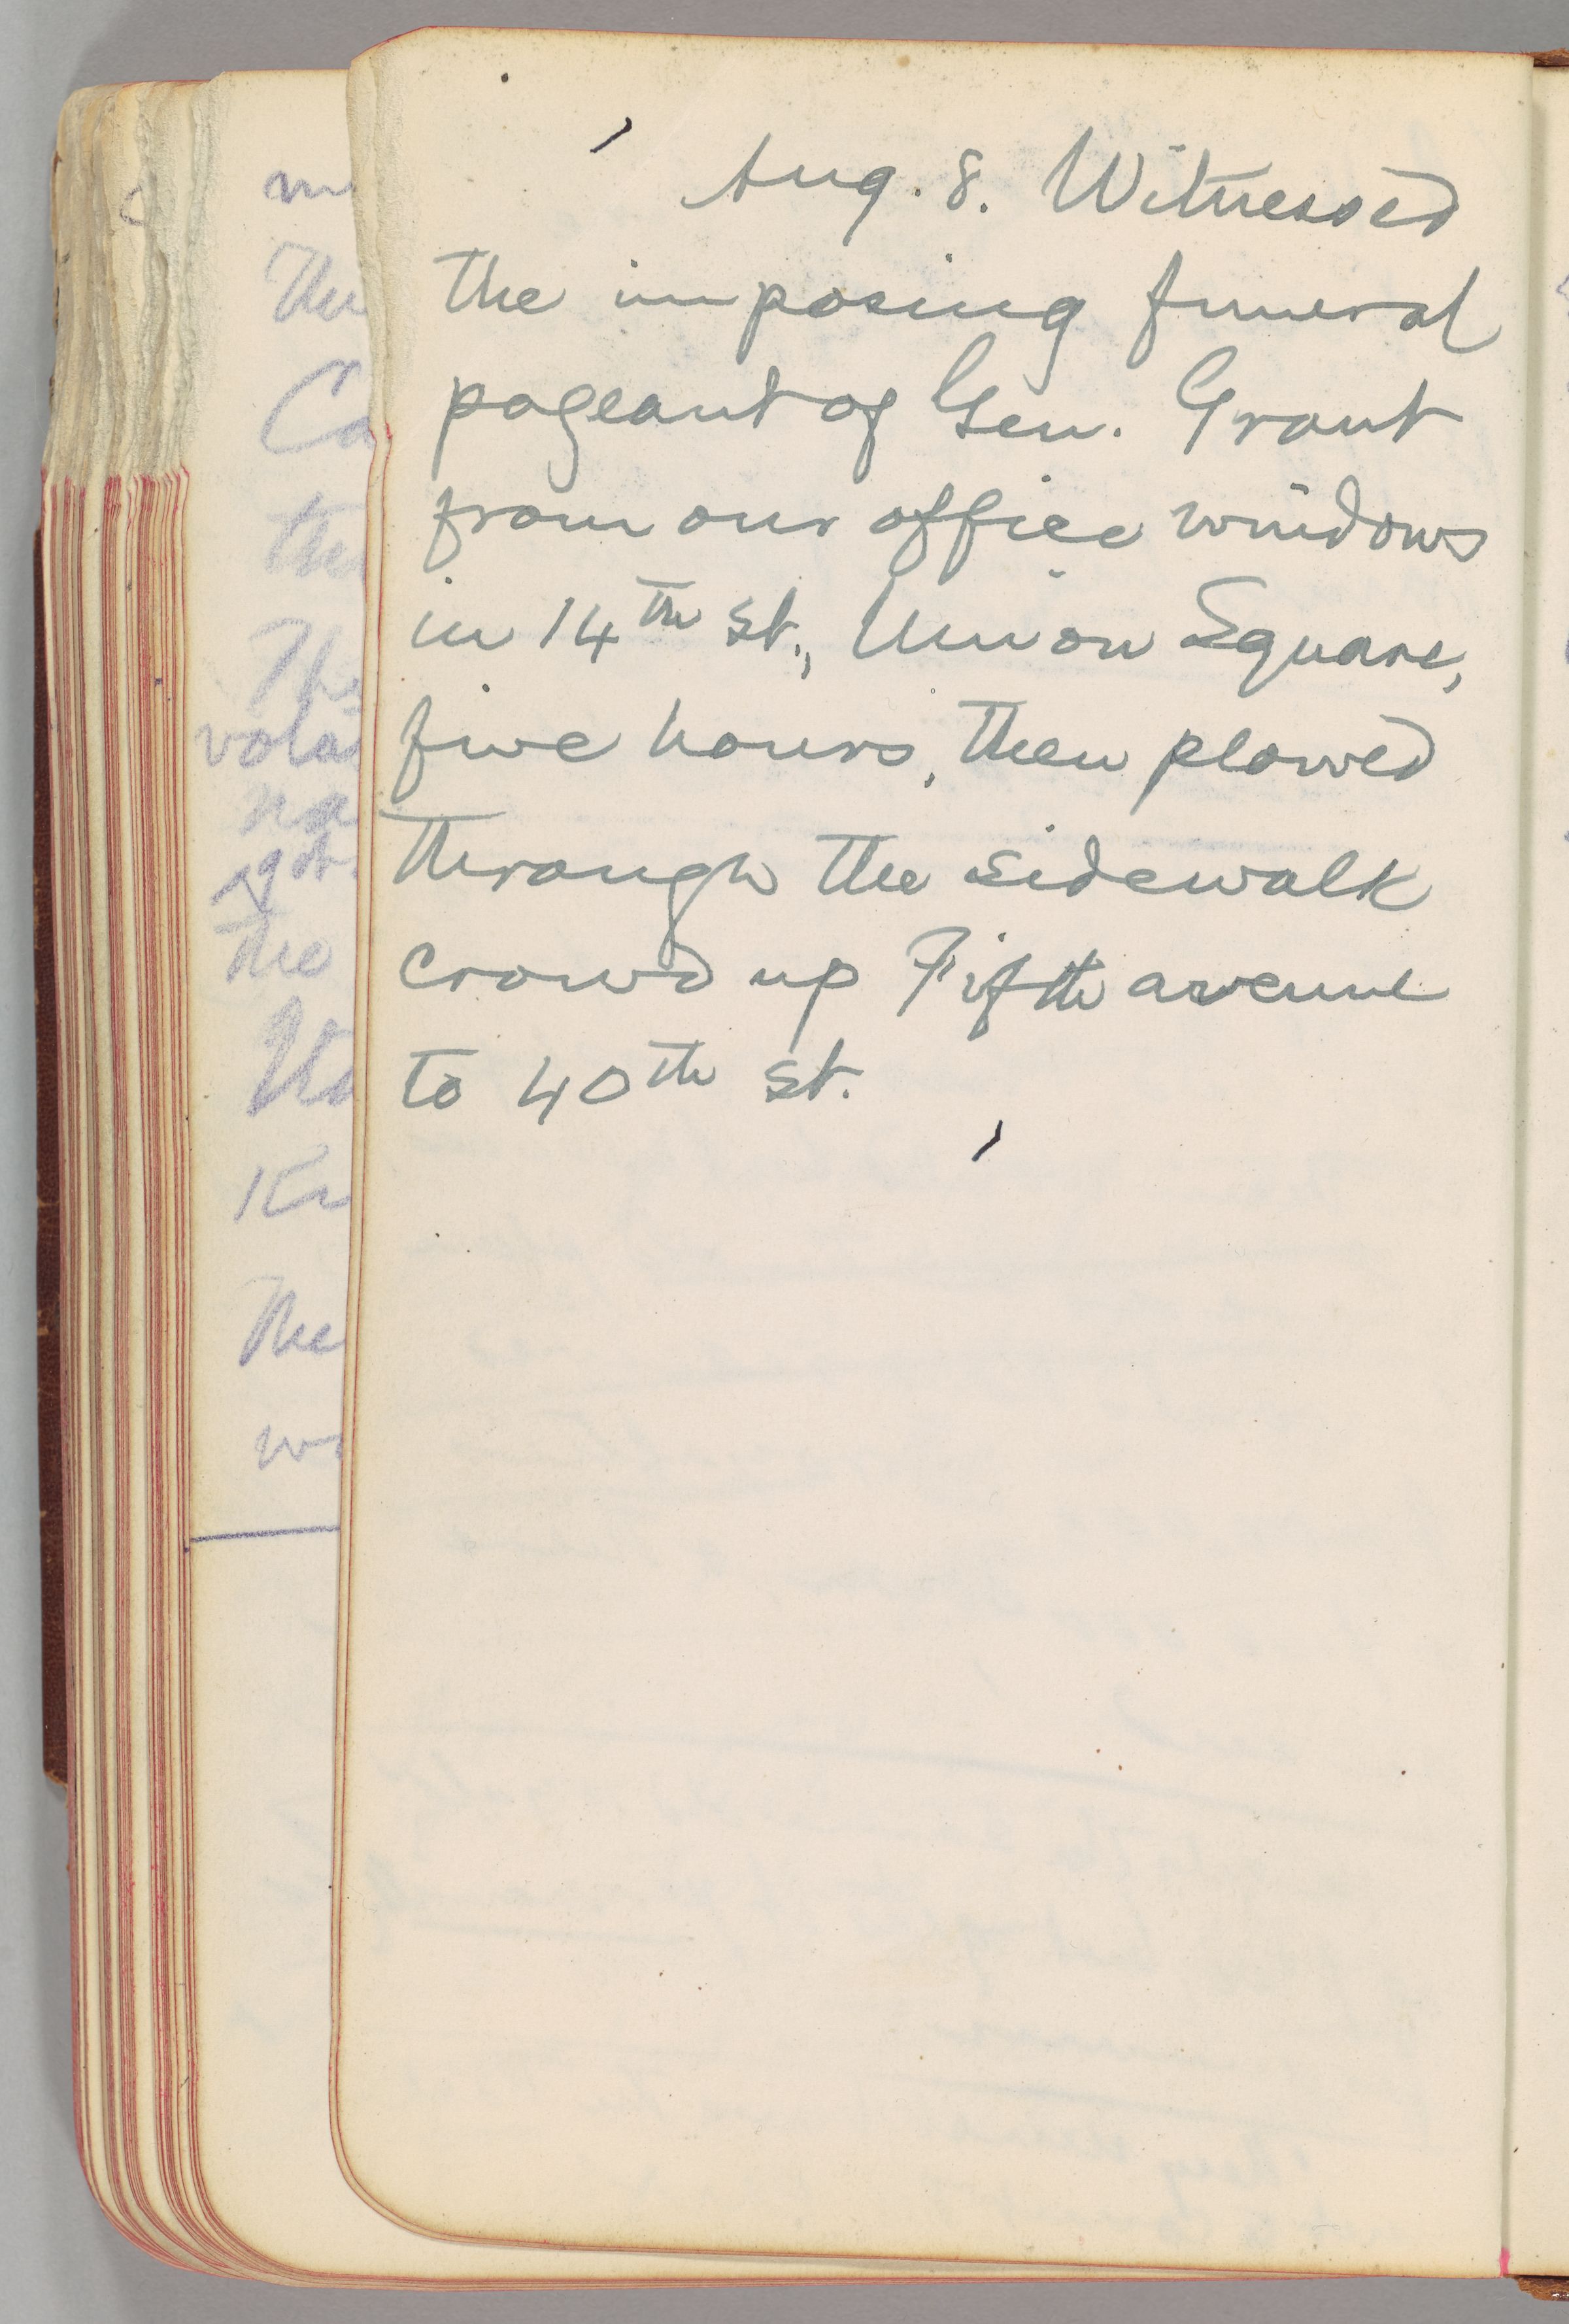 Aug. 8. Witnessed
the imposing funeral
pageant of Gen. Grant
from our office windows
in 14th St., Union Square,
five hours, then plowed
through the sidewalk
crowd up Fifth avenue
to 40th St.
the
The